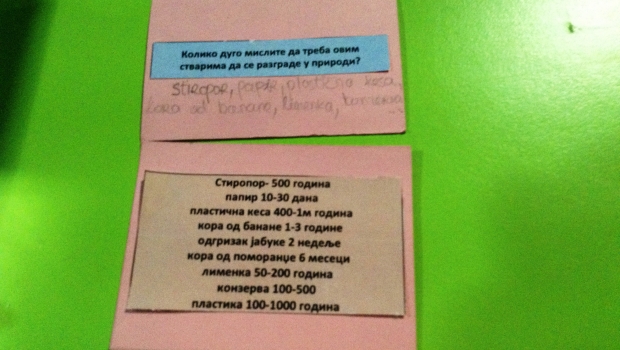 Колико дуго мислите да треба овим
стварима да се разграде у природи?
stiropor, papir, plastična kesa,
kora od banane, limenka,
Стиропор- 500 година
папир 10-30 дана
пластична кеса 400-1м година
кора од банане 1-3 године
одгризак јабуке 2 недеље
кора од поморанџе 6 месеци
лименка 50-200 година
конзерва 100-500
пластика 100-1000 година